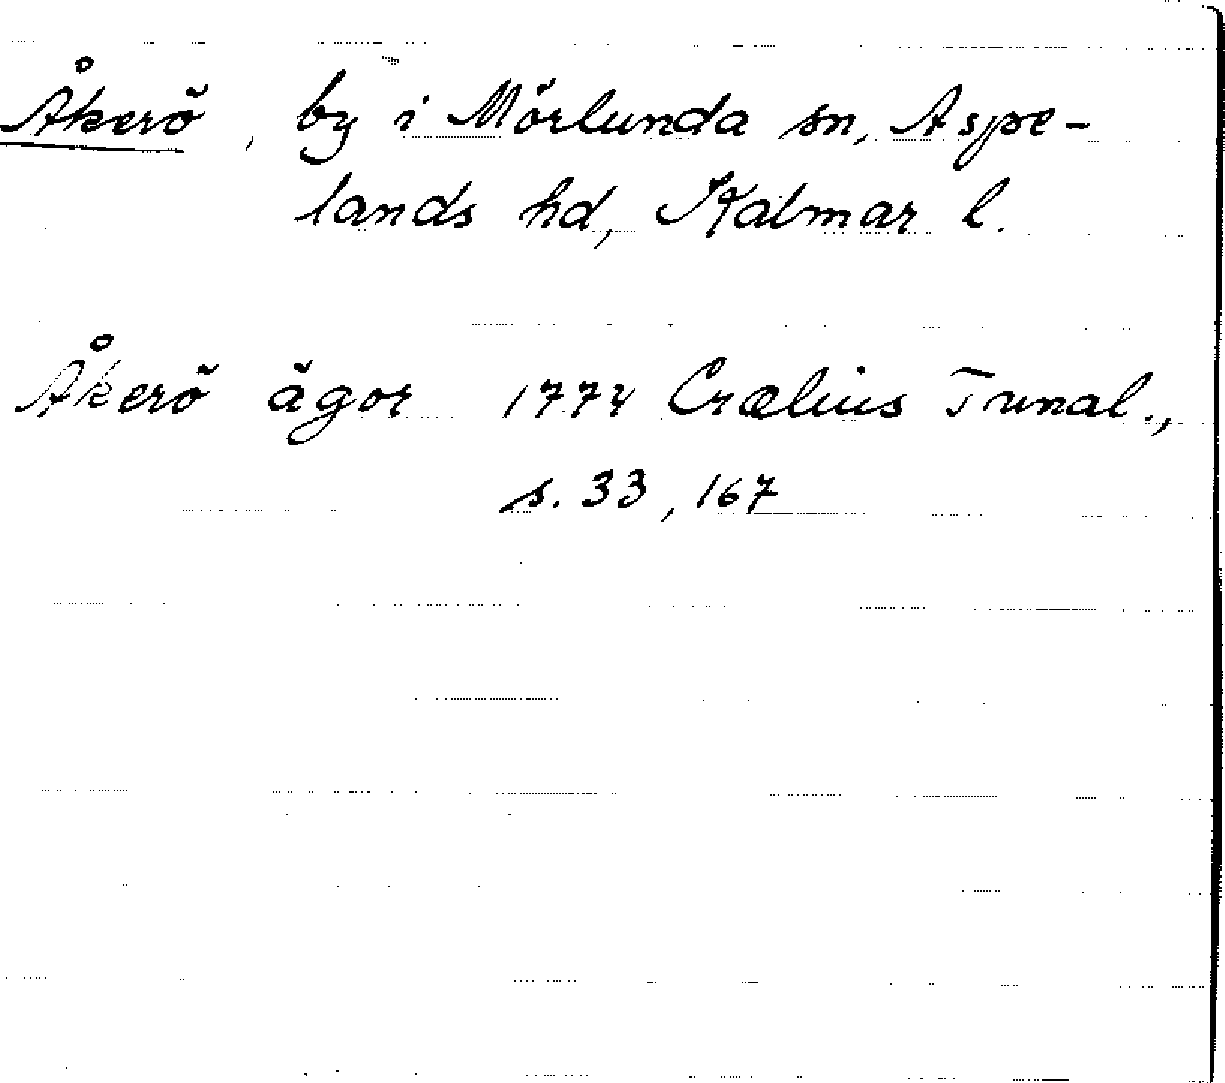 Åkerö, by i Mörlunda sn, Aspe-
lands hd, Kalmar l.
Åkerö ägor 1774 Crælius Tunal.,
s. 33, 167